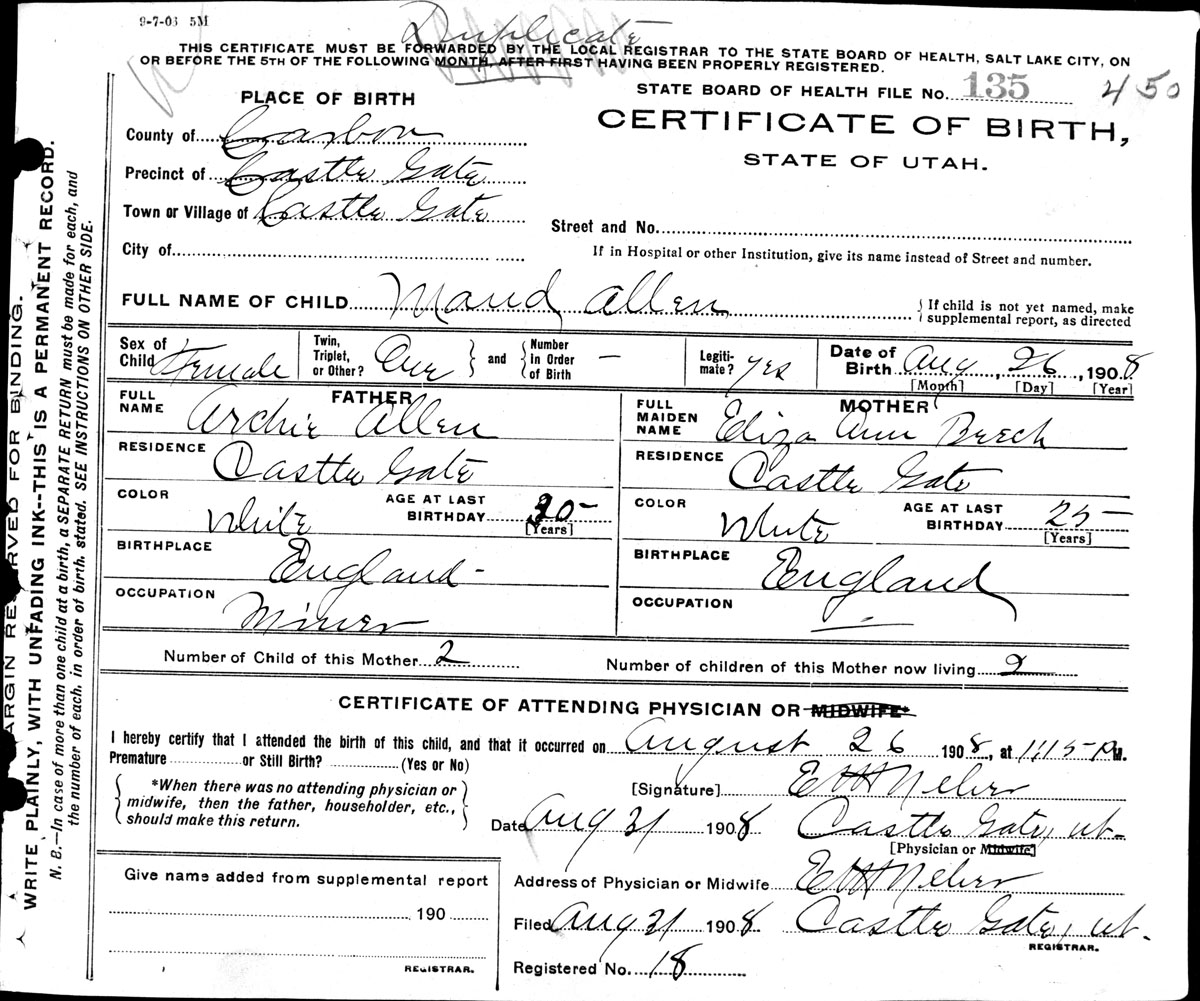 9-7-03 5M
Duplicate
THIS CERTIFICATE MUST BE FORWARDED BY THE LOCAL REGISTRAR TO THE STATE BOARD OF HEALTH, SALT LAKE CITY, ON
OR BEFORE THE 5TH OF THE FOLLOWING MONTH, AFTER FIRST HAVING BEEN PROPERLY REGISTERED.
STATE BOARD OF HEALTH FILE No. 135 450
PLACE OF BIRTH
CERTIFICATE OF BIRTH,
STATE OF UTAH.
County of Carbon
Precinct of Castle Gate
Town or Village of Castle Gate
Street and No.
City of
If in Hospital or other Institution, give its name instead of Street and number.
FULL NAME OF CHILD Maud Allen
If child is not yet named, make
supplemental report, as directed
Sex of Child Female
Twin, Triplet, or Other? One and Number in Order of Birth –
Legiti-mate? yes
Date of Birth Aug 26, 1908
[Month] [Day] [Year]
FATHER
FULL NAME Archie Allen
RESIDENCE Castle Gate
COLOR White AGE AT LAST BIRTHDAY 30 –
[Years]
BIRTHPLACE England -
OCCUPATION Miner
MOTHER
FULL MAIDEN NAME Eliza Ann Beech
RESIDENCE Castle Gate
COLOR White AGE AT LAST BIRTHDAY 25 –
[Years]
BIRTHPLACE England
OCCUPATION –
Number of Child of this Mother 2 Number of children of this Mother now living 2
CERTIFICATE OF ATTENDING PHYSICIAN OR MIDWIFE*
I hereby certify that I attended the birth of this child, and that it occurred on August 26 1908, at 1:15 P M.
Premature or Still Birth? (Yes or No)
*When there was no attending physician or
midwife, then the father, householder, etc.,
should make this return.
[Signature] E H
Date Aug 31 1908 Castle Gate, ut-
[Physician or Midwife]
Address of Physician or Midwife E H
Filed Aug 31 1908 Castle Gate, ut.
REGISTRAR.
Registered No. 18
Give name added from supplemental report
190
REGISTRAR.
MARGIN RESERVED FOR BINDING.
WRITE PLAINLY, WITH UNFADING INK--THIS IS A PERMANENT RECORD.
N. B.—In case of more than one child at a birth, a SEPARATE RETURN must be made for each, and
the number of each, in order of birth, stated. SEE INSTRUCTIONS ON OTHER SIDE.